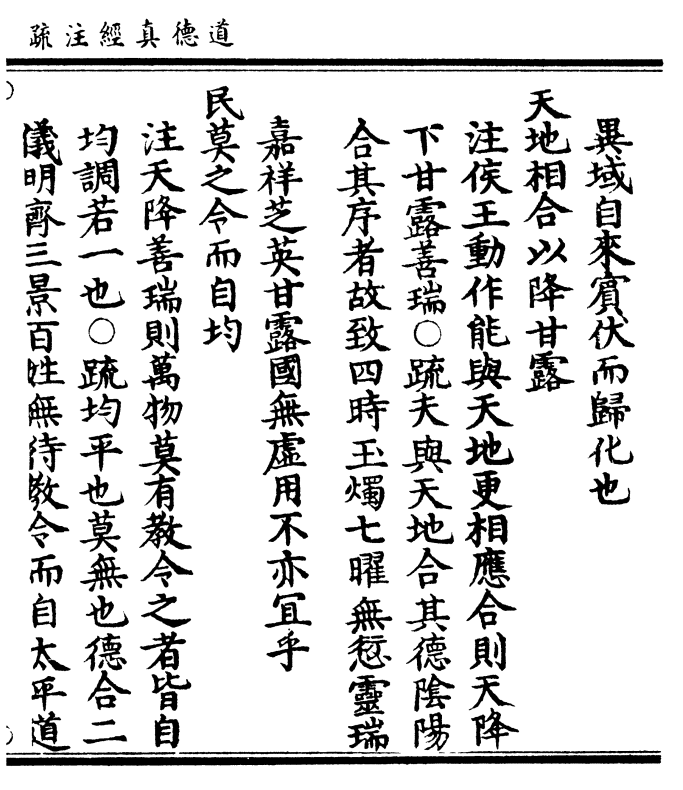 道德真經注疏
異域自來賓伏而歸化也
天地相合以降甘露
注侯王動作能與天地更相應合則天降
下甘露善瑞〇疏夫與天地合其德陰陽
合其序者故致四時玉燭七曜無愆靈瑞
嘉祥芝英甘露國無虛用不亦冝乎
民莫之令而自均
注天降善瑞則萬物莫有教令之者皆自
均調若一也〇疏均平也莫無也德合二
儀明齊三景百姓無待教令而自太平道